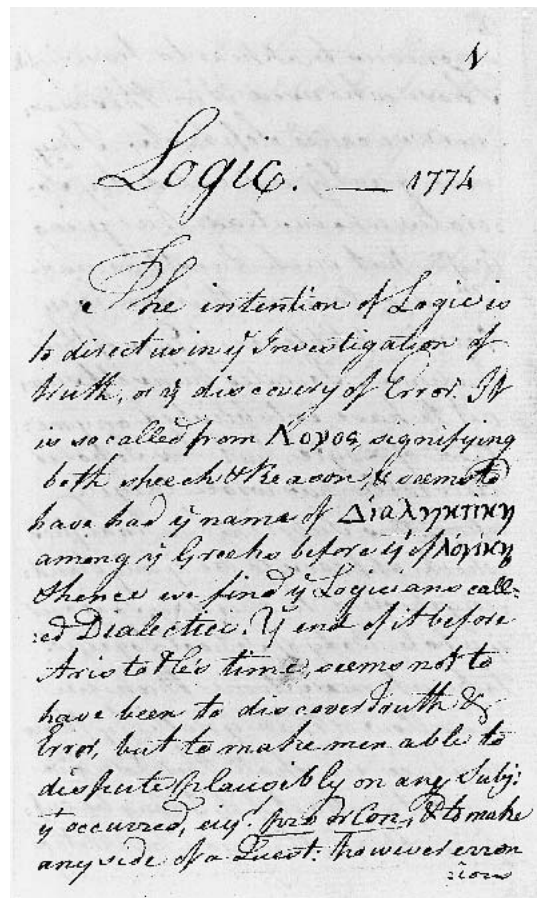 1
Logic. — 1774
The intention of Logic is
to direct us in ÿ Investigation of
truth, or ÿ discovery of Error. It
is so called from Λογος, signifying
both speech & Reason, & seems to
have had ÿ name of Διαλησκτικη
among ÿ Greeks before ÿ of Λόγικη
& hence we find ÿ Logicians call=
:ed Dialectici. Ÿ end of it before
Aristotle's time, seems not to
have been to discover truth &
Error, but to make men able to
dispute plausibly on any Subj:
ÿ occurred, eiyr. pro or Con, & to make
any side of a Quest: however erron
:ious